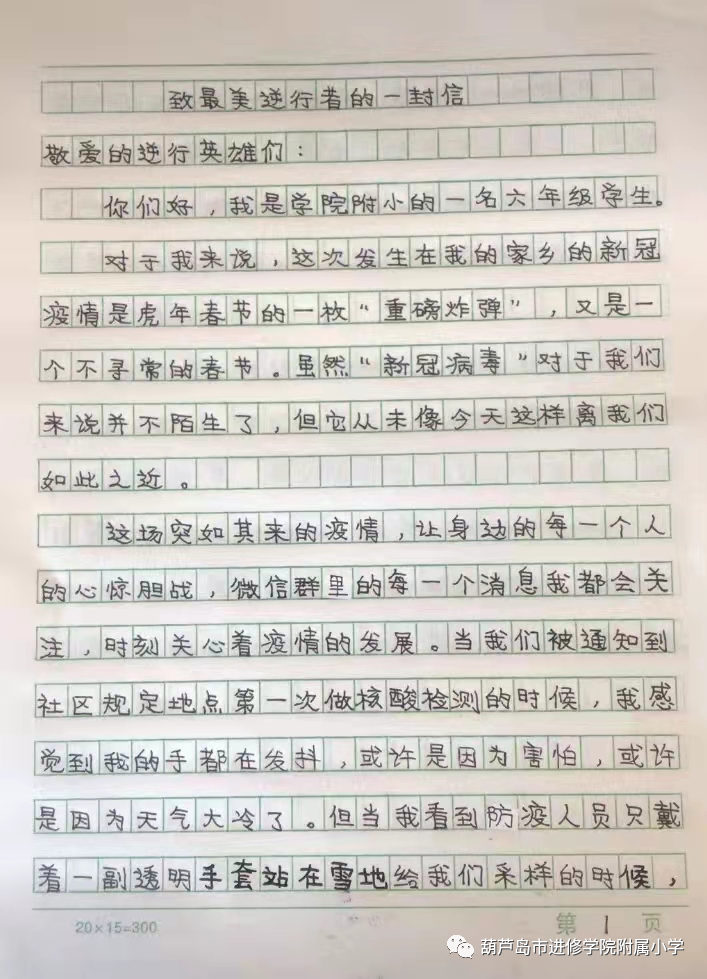 致最美逆行者的一封信
敬爱的逆行英雄们：
你们好，我是学院附小的一名六年级学生。
对于我来说，这次发生在我的家乡的新冠
疫情是虎年春节的一枚“重磅炸弹”，又是一
个不寻常的春节。虽然“新冠病毒”对于我们
来说并不陌生了，但它从未像今天这样离我们
如此之近。
这场突如其来的疫情，让身边的每一个人
的心惊胆战，微信群里的每一个消息我都会关
注，时刻关心着疫情的发展。当我们被通知到
社区规定地点第一次做核酸检测的时候，我感
觉到我的手都在发抖，或许是因为害怕，或许
是因为天气大冷了。但当我看到防疫人员只戴
着一副透明手套站在雪地给我们采样的时候，
20×15=300
第1页
葫芦岛市进修学院附属小学